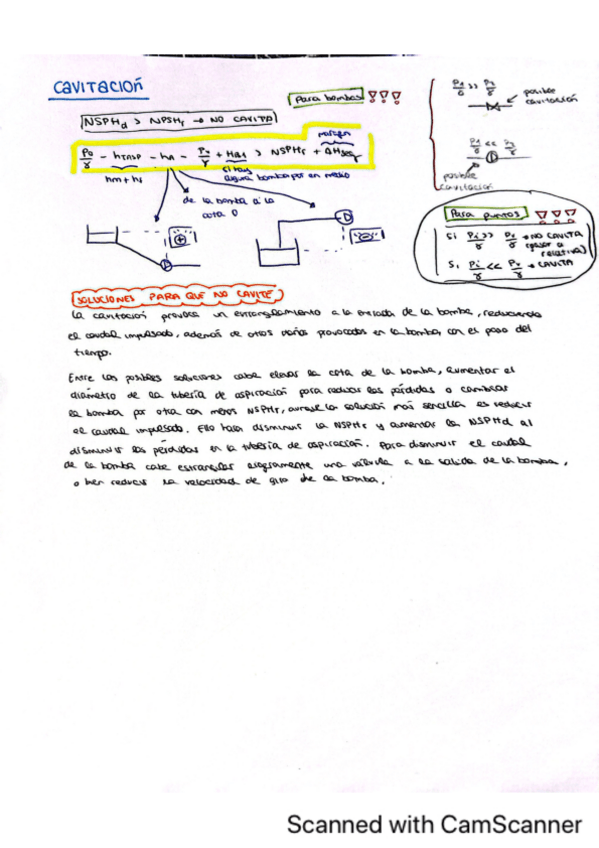 CAVITACIÓN
Para bombas !!!
NSPHd > NPSHr → NO CAVITA
margen
P0/γ - hTASP - hA - Pv/γ + HB1 > NSPHr + ΔHseg
hm + hs
si hay alguna bomba por en medio
de la bomba a la
cota 0
P1/γ >> P2/γ
posible
cavitación
P1/γ << P2/γ
posible
cavitación
Para puntos !!!
Si Pi/γ >> Pv/γ → NO CAVITA
(pasar a
relativa)
Si Pi/γ << Pv/γ → CAVITA
SOLUCIONES PARA QUE NO CAVITE
La cavitación provoca un estrangulamiento a la entrada de la bomba, reduciendo
el caudal impulsado, además de otros daños provocados en la bomba con el paso del
tiempo.
Entre las posibles soluciones cabe elevar la cota de la bomba, aumentar el
diámetro de la tubería de aspiración para reducir las pérdidas o cambiar
la bomba por otra con menos NSPHr, aunque la solución más sencilla es reducir
el caudal impulsado. Ello hará disminuir la NSPHr y aumentar la NSPHd al
disminuir las pérdidas en la tubería de aspiración. Para disminuir el caudal
de la bomba cabe estrangular ligeramente una válvula a la salida de la bomba,
o bien reducir la velocidad de giro de la bomba.
Scanned with CamScanner